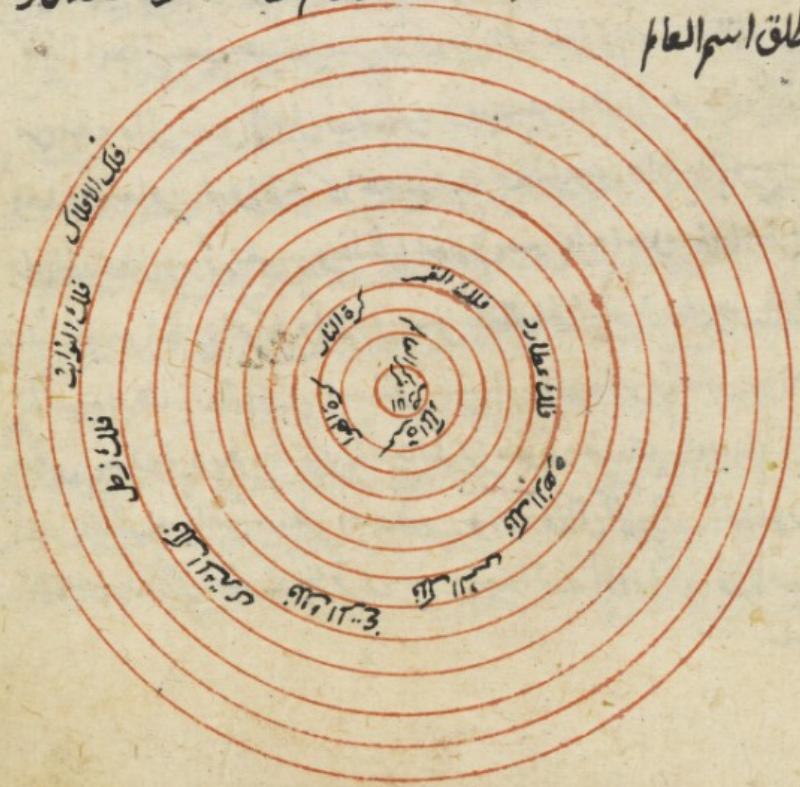 طلق اسم العالم
فلك الافلاك
فلك الثوابت
فلك زحل
فلك المشترى
فلك المريخ
فلك الشمس
فلك الزهره
فلك عطارد
فلك القمر
كرة النار
كرة الهوا
كرة الماء
مركز العالم